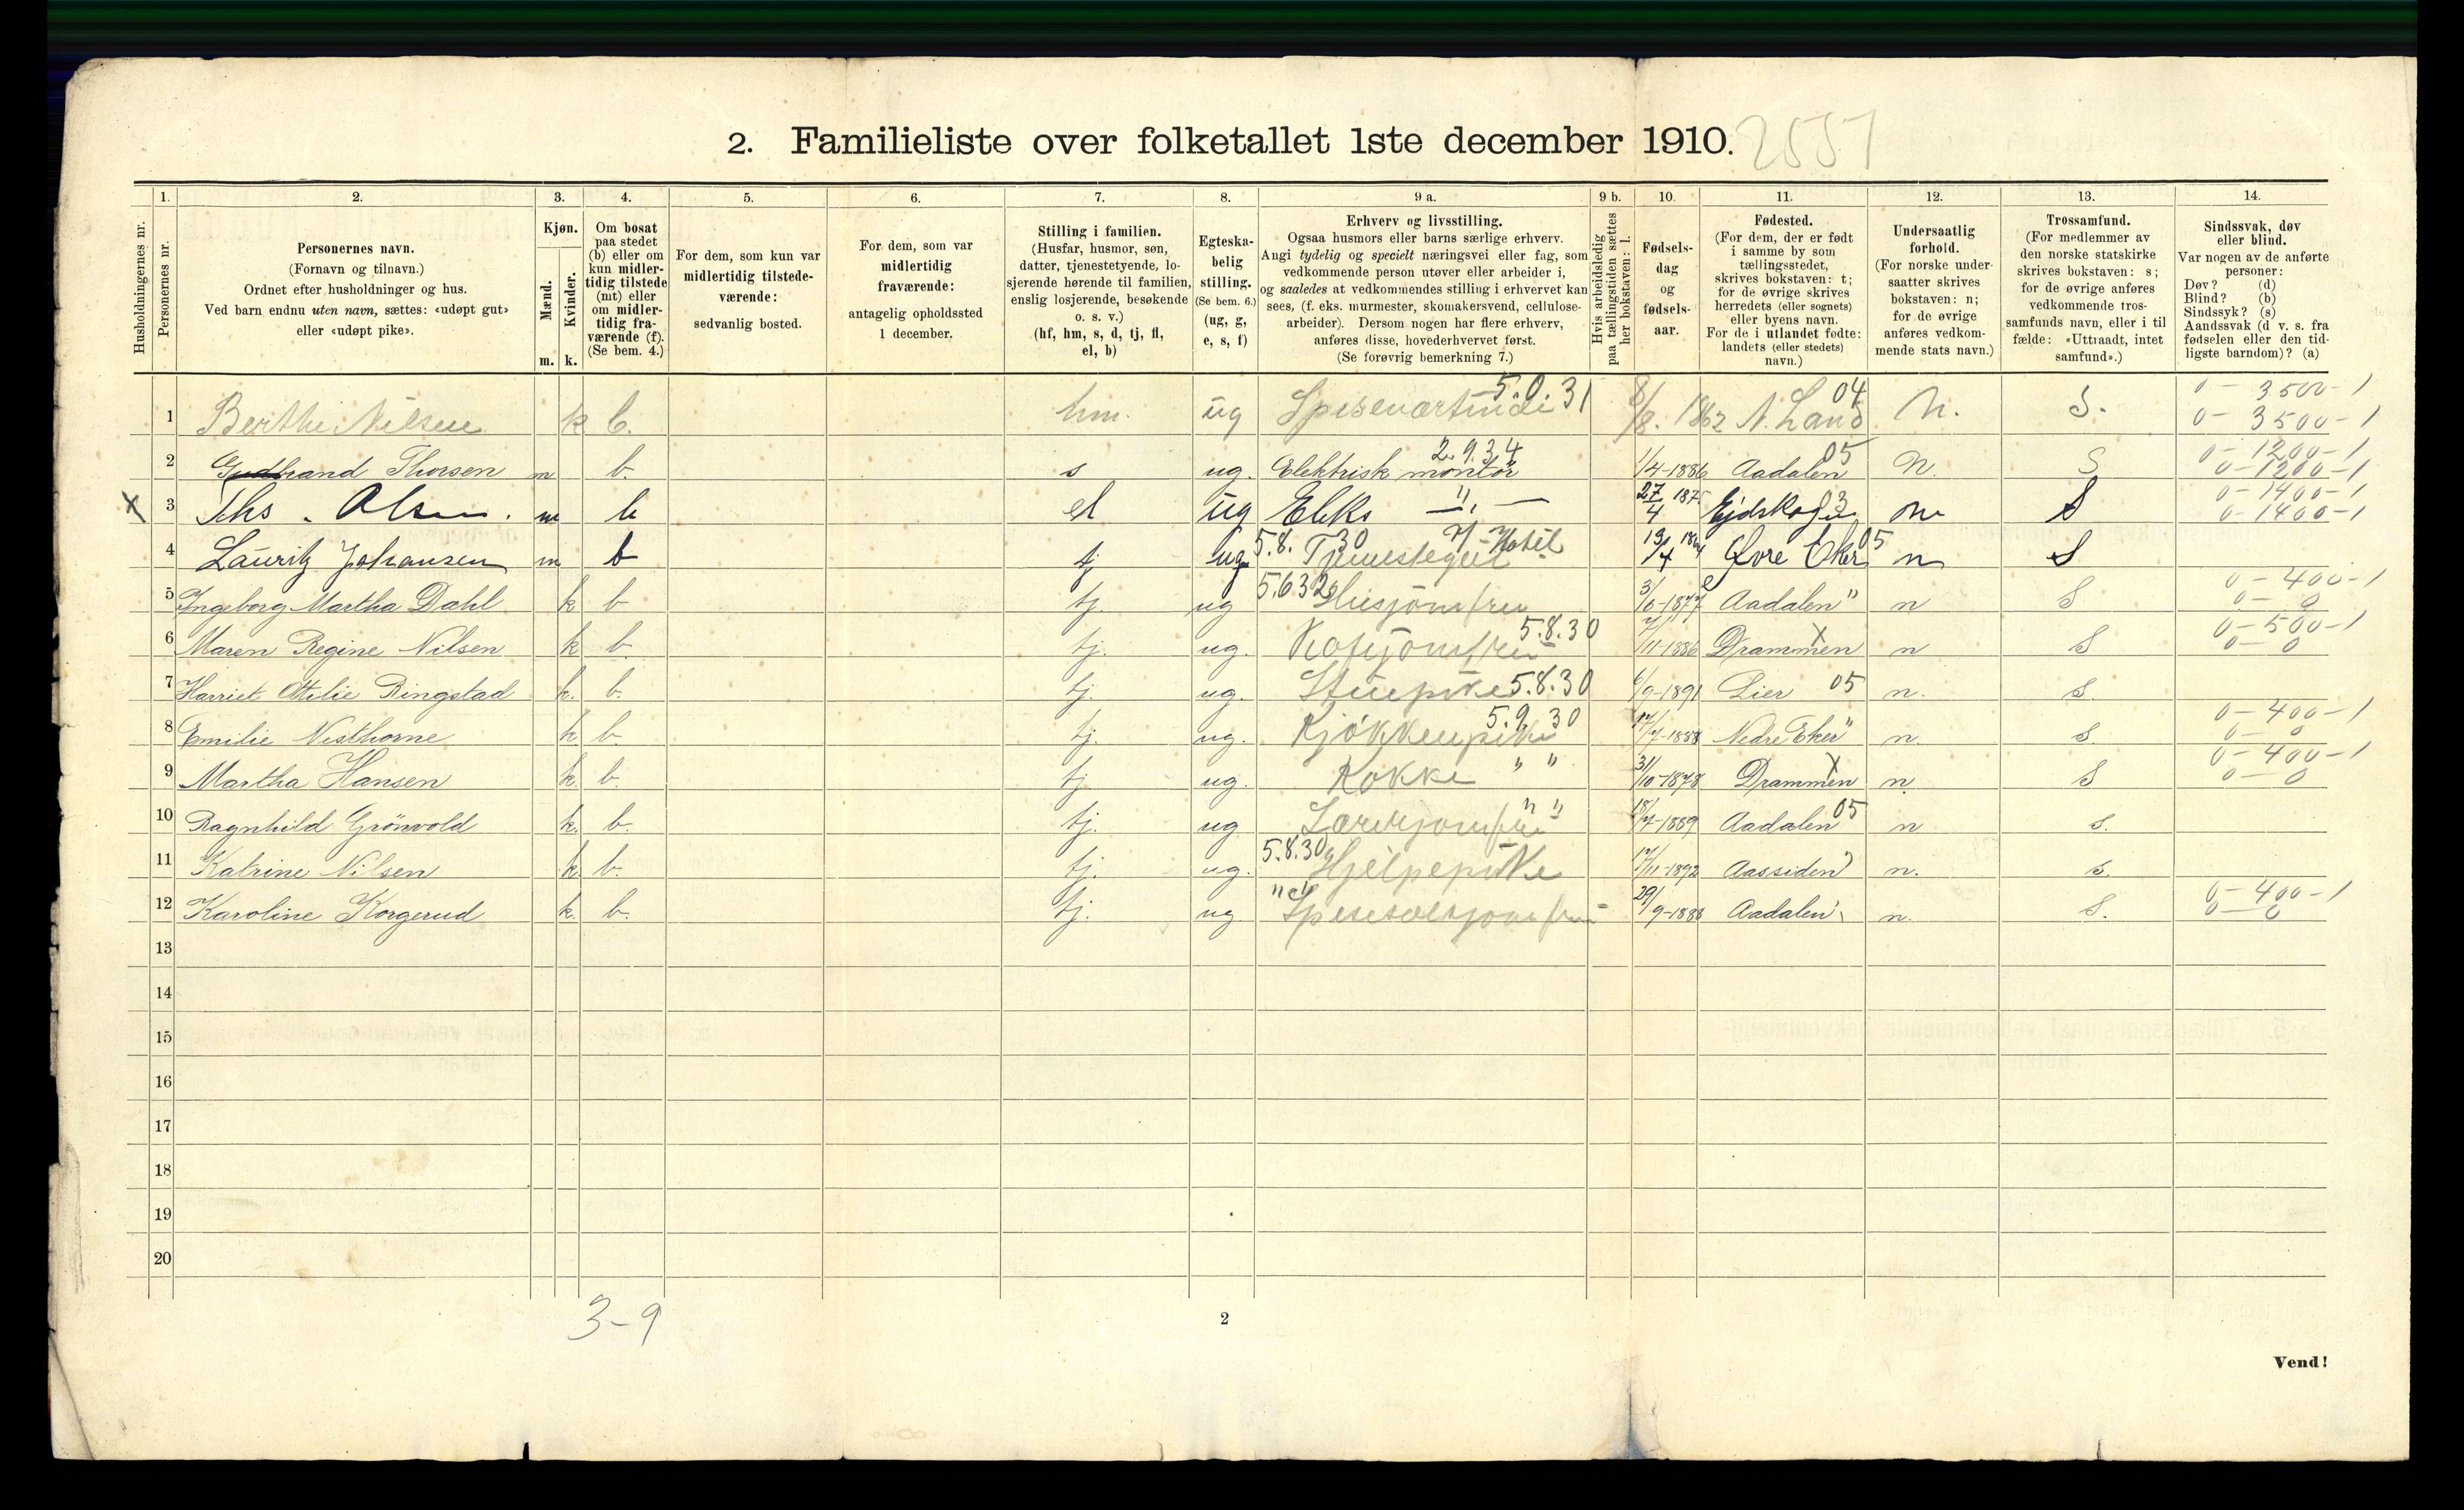 2. Familieliste over folketallet 1ste december 1910. 2551
Husholdningernes nr.
1. Personernes nr.
2. Personernes navn. (Fornavn og tilnavn.) Ordnet efter husholdninger og hus. Ved barn endnu uten navn, sættes: «udøpt gut» eller «udøpt pike».
3. Kjøn. Mænd. m. Kvinder. k.
4. Om bosat paa stedet (b) eller om kun midlertidig tilstede (mt) eller om midlertidig fraværende (f). (Se bem. 4.)
5. For dem, som kun var midlertidig tilstedeværende: sedvanlig bosted.
6. For dem, som var midlertidig fraværende: antagelig opholdssted 1 december.
7. Stilling i familien. (Husfar, husmor, søn, datter, tjenestetyende, losjerende hørende til familien, enslig losjerende, besøkende o. s. v.) (hf, hm, s, d, tj, fl, el, b)
8. Egteskabelig stilling. (Se bem. 6.) (ug, g, e, s, f)
9 a. Erhverv og livsstilling. Ogsaa husmors eller barns særlige erhverv. Angi tydelig og specielt næringsvei eller fag, som vedkommende person utøver eller arbeider i, og saaledes at vedkommendes stilling i erhvervet kan sees, (f. eks. murmester, skomakersvend, cellulosearbeider). Dersom nogen har flere erhverv, anføres disse, hovederhvervet først. (Se forøvrig bemerkning 7.)
9 b. Hvis arbeidsledig paa tællingstiden sættes her bokstaven: l.
10. Fødselsdag og fødselsaar.
11. Fødested. (For dem, der er født i samme by som tællingsstedet, skrives bokstaven: t; for de øvrige skrives herredets (eller sognets) eller byens navn. For de i utlandet fødte: landets (eller stedets) navn.)
12. Undersaatlig forhold. (For norske undersaatter skrives bokstaven: n; for de øvrige anføres vedkommende stats navn.)
13. Trossamfund. (For medlemmer av den norske statskirke skrives bokstaven: s; for de øvrige anføres vedkommende trossamfunds navn, eller i tilfælde: «Uttraadt, intet samfund».)
14. Sindssvak, døv eller blind. Var nogen av de anførte personer: Døv? (d) Blind? (b) Sindssyk? (s) Aandssvak (d v. s. fra fødselen eller den tidligste barndom)? (a)
1 Berthe Nilsen k b. hm. ug Spisevertinde 5.0.31 8/8. 1862 N. Land 04 N. S. 0-3500-1 0-3500-1
2 Gudbrand Thorsen m b. s ug. Elektrisk montör 2.9.34 1/4-1886 Aadalen 05 N. S 0-1200-1 0-1200-1
X 3 Ths. Olsen. m b el ug Eleks — " — 27/4 187 Ejdskog 03 n S 0-1400-1 0-1400-1
4 Lauritz Johansen m b tj ug 5.8.30 Tjenestegut v/ Hotel 19/4 Øvre Eker 05 n S
5 Ingeborg Martha Dahl k b tj. ug 5.632 Husjomfru 3/6-1877 Aadalen " n S 0-400-1 0-0
6 Maren Regine Nilsen k b. tj. ug. 5.8.30 /11-1886 Drammen X n S 0-500-1 0-0
7 Harriet Otilie Ringstad k. b. tj. ug. Stuepike 5.8.30 6/9-1891 Lier 05 n. s.
8 Emilie Nisthorne k b. tj. ug. Kjøkkenpike 5.9.30 17/7-1888 Nedre Eker " n. s. 0-400-1 0-0
9 Martha Hansen k. b. tj ug. Kokke " " 31/10-1878 Drammen X n. S 0-400-1 0-0
10 Ragnhild Grönvold k. b. tj. ug Lærejomfru " " 18/7-1889 Aadalen 05 n s.
11 Katrine Nilsen k. b. tj. ug. 5.8.30 Hjelpepike 17/11-1892 Aassiden " n. s.
12 Karoline Korgerud k. b. tj. ug " " Spisesalsjomfru 29/9-1888 Aadalen " n. S. 0-400-1 0-0
13
14
15
16
17
18
19
20
3-9
2
Vend!